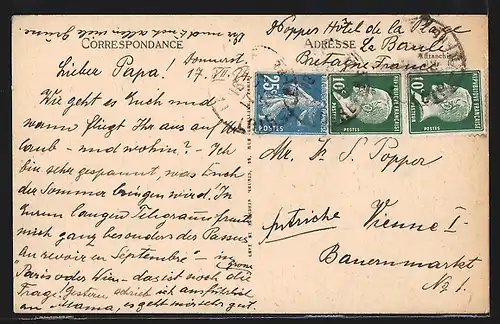 Ihr und allen viele Grüsse
CORRESPONDANCE
Popper Hôtel de la Plage
ADRESSE La Baule
Bretagne France
Donnerst
17. VII. 24
Lieber Papa!
Wie geht es Euch und
wann fliegt Ihr aus auf Ur
laub - und wohin? - Ich
bin sehr gespannt, was Euch
der Sommer bringen wird! In
Eurem langen Telegramm freut
mich ganz besonders der Passus
"au revoir en Septembre" - in
Paris oder Wien - das ist noch die grosse
Frage! Gestern schrieb ich ausführlich
an Mama, es geht mir sehr gut.
25c
POSTES
10c
REPUBLIQUE FRANÇAISE
POSTES
10c
REPUBLIQUE FRANÇAISE
POSTES
Mr. Dr S. Popper
Autriche Vienne I
Bauernmarkt
No 1.